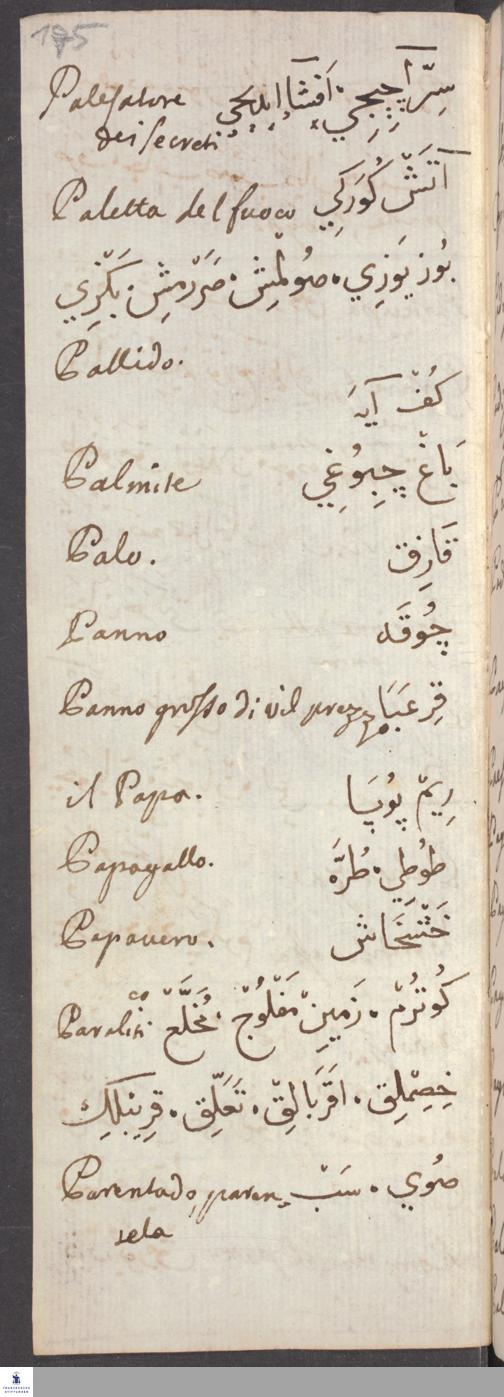 175
Palesatore سِرّ آچِيجِي، اَفْشَا ايديجي
dei secreti
Paletta del fuoco آتَشْ كُورَكِي
بُوز يوُزِي، صُولْمِشْ، صَرَرْمِشْ، بَڭْزِي
Pallido.
كُفْ آيَه
Palmite بَاغْ چِبُوغِي
Palo. قَازِقْ
Panno چُوقَه
Panno grosso di vil prezzo قِرْ عَبَا
il Papa. رِيمْ پُوپَا
Papagallo. طُوطِي، طُرَّه
Papauero. خَشْخَاشْ
Paralitico كُوتُرُمْ، زَمِينْ، مَفْلُوجْ، مُخَلَّعْ
خِصِمْلِقْ، اَقْرَبَالِقْ، تَعَلِّقْ، قَرِينْلِكْ
Parentado, paren صُويْ، نَسَبْ
tela
FRANCKESCHE STIFTUNGEN